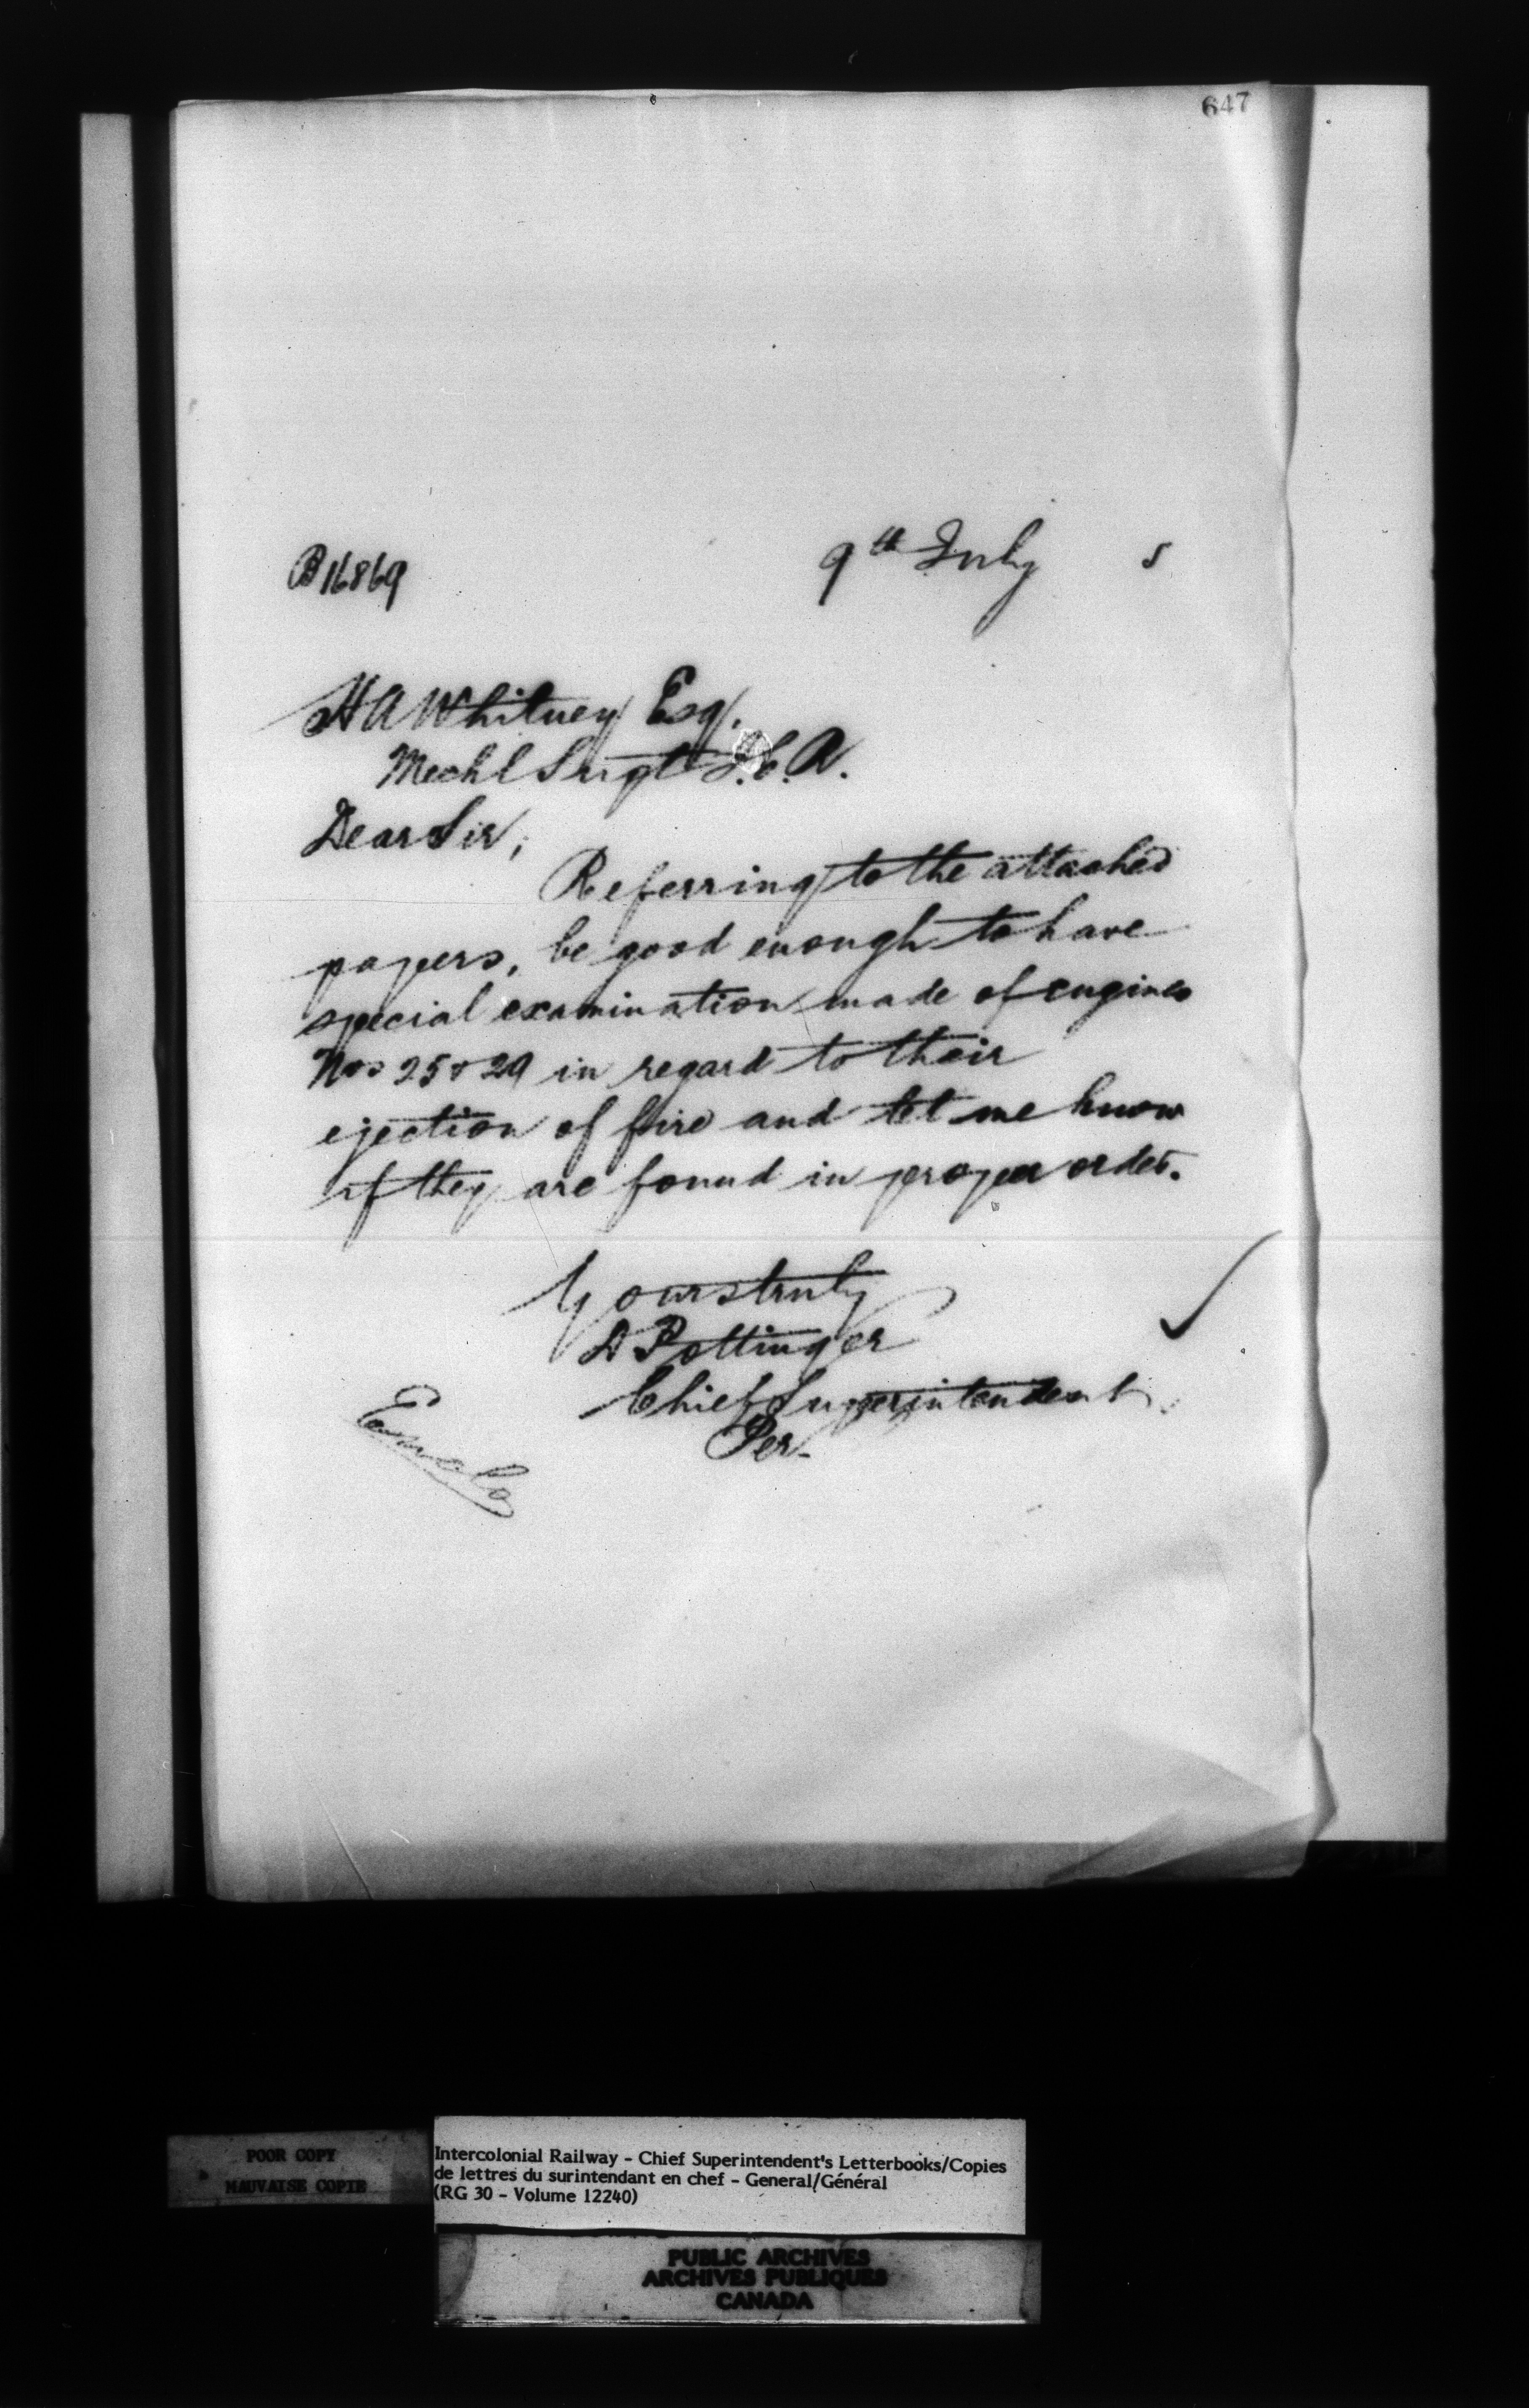 647
B16869
9th July 5
H A Whitney Esq.
Mechl Supt I.C.R.
Dear Sir,
Referring to the attached
papers, be good enough to have
special examination made of engines
Nos 25 & 29 in regard to their
ejection of fire and let me know
if they are found in proper order.
Yours truly
D Pottinger
Chief Superintendent
Per.
Enclo
POOR COPY
MAUVAISE COPIE
Intercolonial Railway - Chief Superintendent's Letterbooks/Copies
de lettres du surintendant en chef - General/Général
(RG 30 - Volume 12240)
PUBLIC ARCHIVES
ARCHIVES PUBLIQUES
CANADA